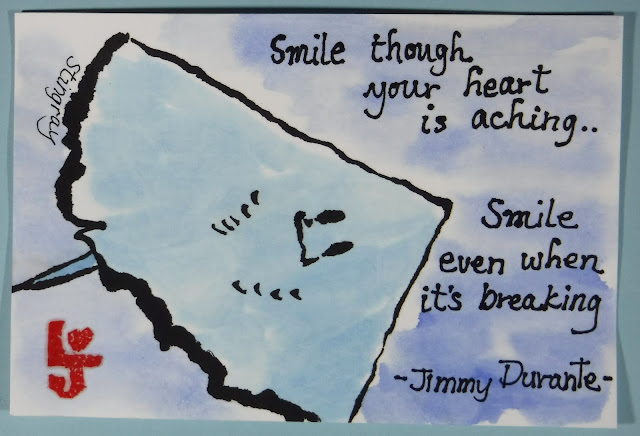 Stingray
Smile though
your heart
is aching..
Smile
even when
it's breaking
-Jimmy Durante-